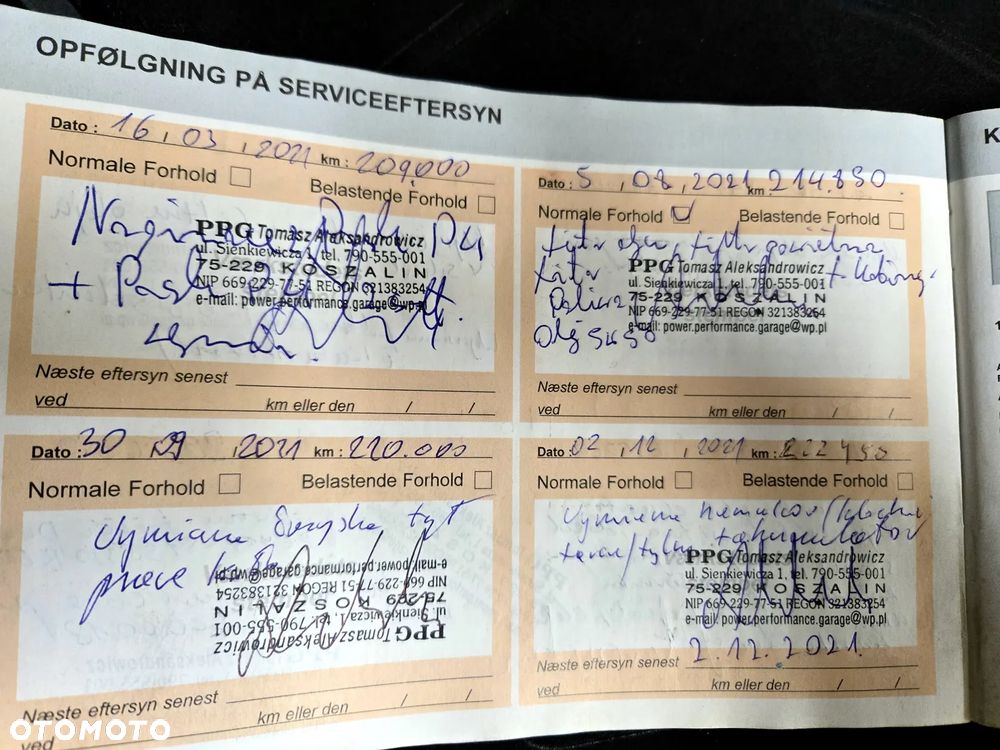 OPFØLGNING PÅ SERVICEEFTERSYN
Dato : 16 , 03 , 2021 km : 209,000
Normale Forhold
Belastende Forhold
PPG Tomasz Aleksandrowicz
ul. Sienkiewicza 1, tel. 790-555-001
75-229 KOSZALIN
NIP 669-229-77-51 REGON 321383254
e-mail: power.performance.garage@wp.pl
+
Næste eftersyn senest
ved km eller den / /
Dato : 5 , 08 , 2021 km 214.830
Normale Forhold
Belastende Forhold
PPG Tomasz Aleksandrowicz
ul. Sienkiewicza 1, tel. 790-555-001
75-229 KOSZALIN
NIP 669-229-77-51 REGON 321383254
e-mail: power.performance.garage@wp.pl
Olej 5W30
Næste eftersyn senest
ved km eller den / /
Dato : 30 09 , 2021 km : 220.000
Normale Forhold
Belastende Forhold
Wymiana tył
prawe
PPG Tomasz Aleksandrowicz
ul. Sienkiewicza 1, tel. 790-555-001
75-229 KOSZALIN
NIP 669-229-77-51 REGON 321383254
e-mail: power.performance.garage@wp.pl
Næste eftersyn senest
ved km eller den / /
Dato : 02 , 12 , 2021 km : 222 450
Normale Forhold
Belastende Forhold
Wymiana hamulców/klocki
tarcze/tylne + akumulator
PPG Tomasz Aleksandrowicz
ul. Sienkiewicza 1, tel. 790-555-001
75-229 KOSZALIN
NIP 669-229-77-51 REGON 321383254
e-mail: power.performance.garage@wp.pl
2.12.2021.
Næste eftersyn senest
ved km eller den / /
K
OTOMOTO